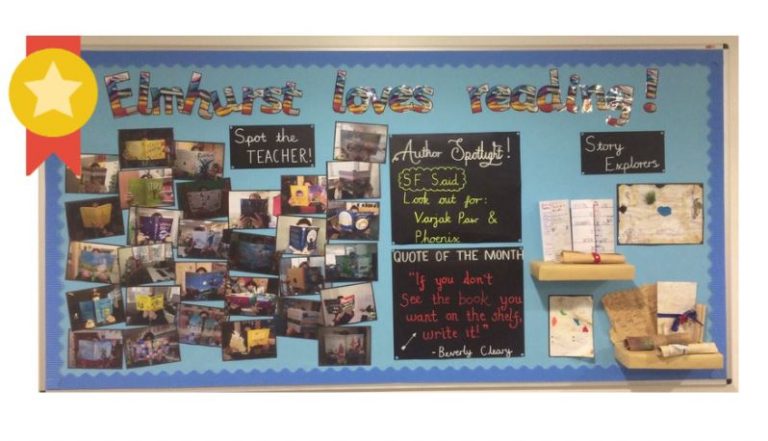 Elmhurst loves reading!
Spot the
TEACHER!
Author Spotlight!
SF Said
Look out for:
Varjak Paw &
Phoenix
Story
Explorers
QUOTE OF THE MONTH
"If you don't
See the book you
want on the shelf,
write it!"
- Beverly Cleary